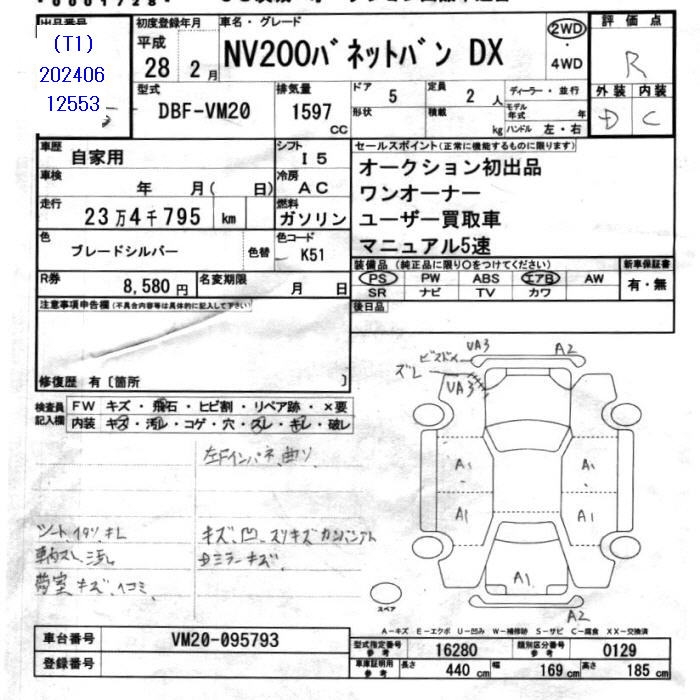 出品番号
(T1)
202406
12553
初度登録年月
平成
28 2月
車名・グレード
NV200バネットバン DX
2WD
4WD
評価点
R
外装 内装
D C
型式
DBF-VM20
排気量
1597
CC
ドア 5
形状
定員 2 人
積載 kg
ディーラー・並行
モデル年式 年
ハンドル 左・右
車歴 自家用
シフト I5
車検 年 月( 日)
冷房 AC
走行 23万4千795 km
燃料 ガソリン
色 ブレードシルバー 色替
色コード K51
R券 8,580円
名変期限 月 日
セールスポイント(正常に機能するものに限ります)
オークション初出品
ワンオーナー
ユーザー買取車
マニュアル5速
装備品 (純正品に限り○をつけてください)
PS PW ABS エアB AW
SR ナビ TV カワ
新車保証書
有・無
後日品
注意事項申告欄(不具合内容等は具体的に記入して下さい)
修復歴 有〔箇所 〕
検査員記入欄
FW キズ・飛石・ヒビ割・リペア跡・×要
内装 キズ・汚れ・コゲ・穴・スレ・キレ・破レ
左Fインパネ曲リ
シートイタリ キレ
車内スレ 汚れ
荷室キズ ヘコミ
キズ、凹、スリキズ
ミラーキズ
UA3
A2
ズレ
UA3
A1
A1
A1
A1
A1
A2
スペア
A―キズ E―エクボ U―凹み W―補修跡 S―サビ C―腐食 XX―交換済
車台番号 VM20-095793
登録番号
型式指定番号 参考 16280
類別区分番号 参考 0129
車庫証明用 参考
長さ 440 cm
幅 169 cm
高さ 185 cm